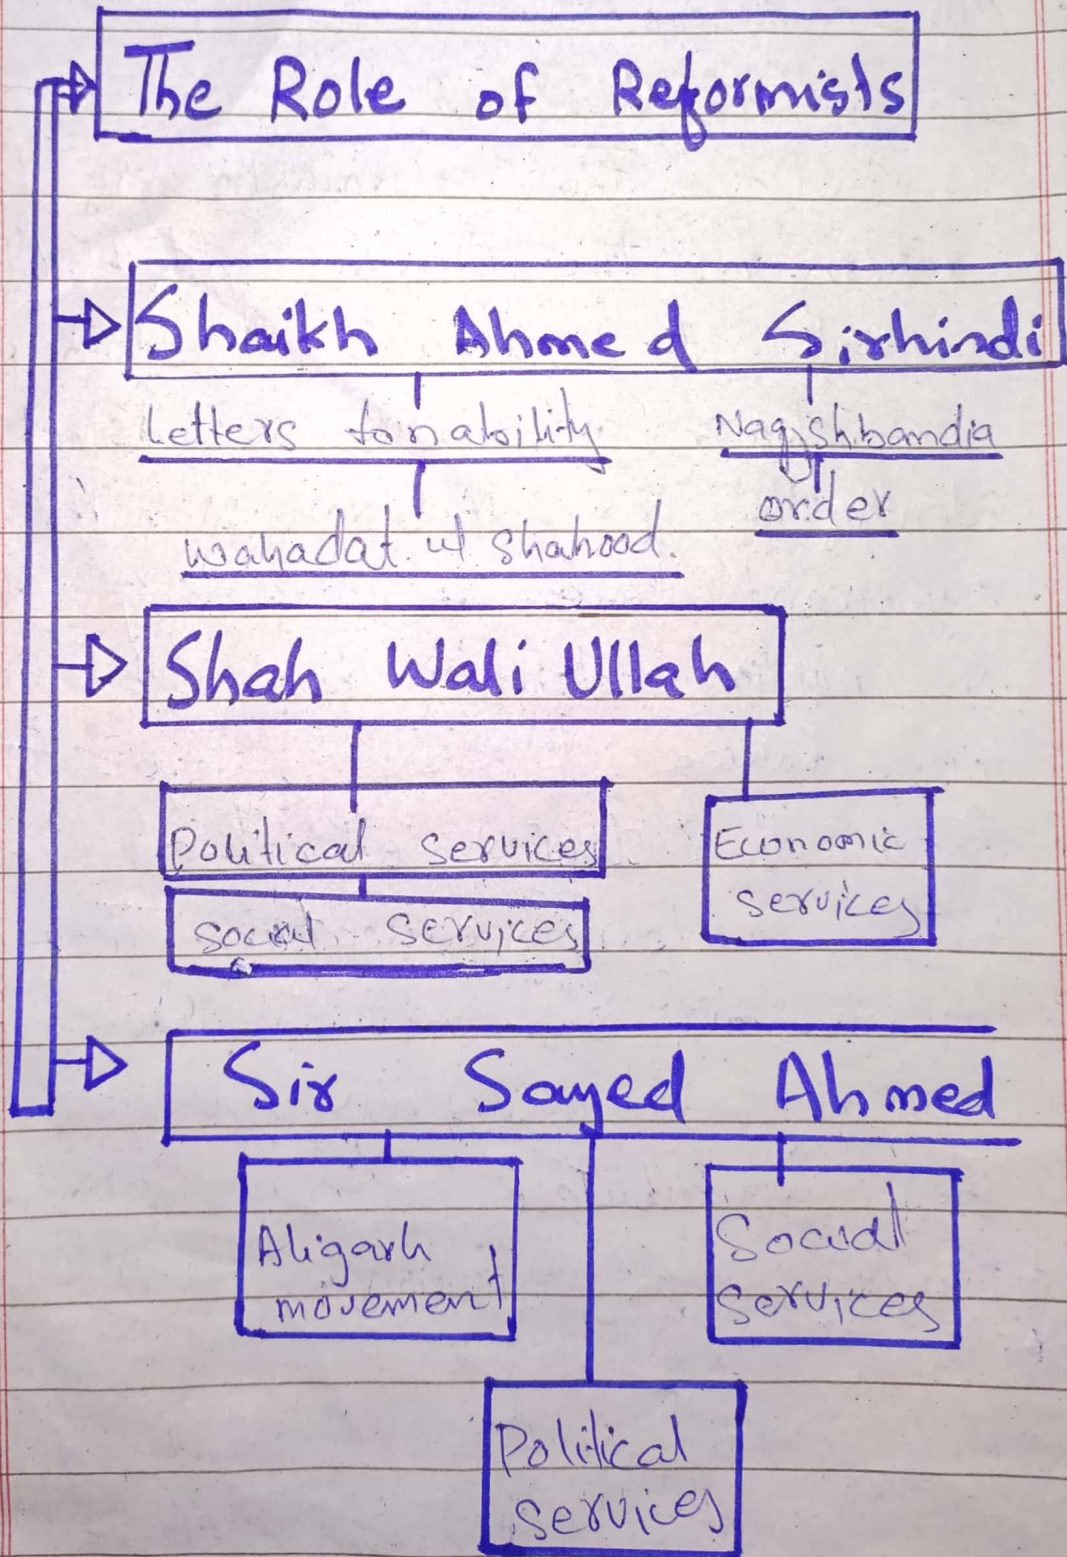 The Role of Reformists
Shaikh Ahmed Sirhindi
letters to nability Naqishbandia
order
wahadat ul shahood.
Shah Wali Ullah
Political services Economic
services
social services
Sir Sayed Ahmed
Aligarh Social
movement services
Political
services